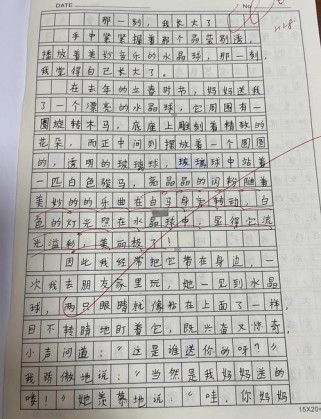 DATE
No
那一刻，我长大了
手中紧紧握着那个晶莹剔透，
播放着美妙音乐的水晶球，那一刻，
我觉得自己长大了。
在去年的立春时节，妈妈送我
了一个漂亮的水晶球，它周围有一
圈旋转木马，底座上雕刻着精致的
花朵，而正中间则摆放着一个圆圆
的，透明的玻璃球，玻璃球中站着
一匹白色骏马，亮晶晶的闪粉随着
美妙的的乐曲在白马身旁转动，白
色的灯光照在水晶球中，显得它流
光溢彩，美丽极了！
因此我经常把它带在身边，一
次我去朋友家里玩，她一见到水晶
球，两只眼睛就像粘在上面了一样，
目不转睛地盯着它，既兴奋又惊奇，
小声问道：“这是谁送你的呀？”
我骄傲地说：“当然是我妈妈送的
喽！”她羡慕地说：“哇，你妈妈
15X20